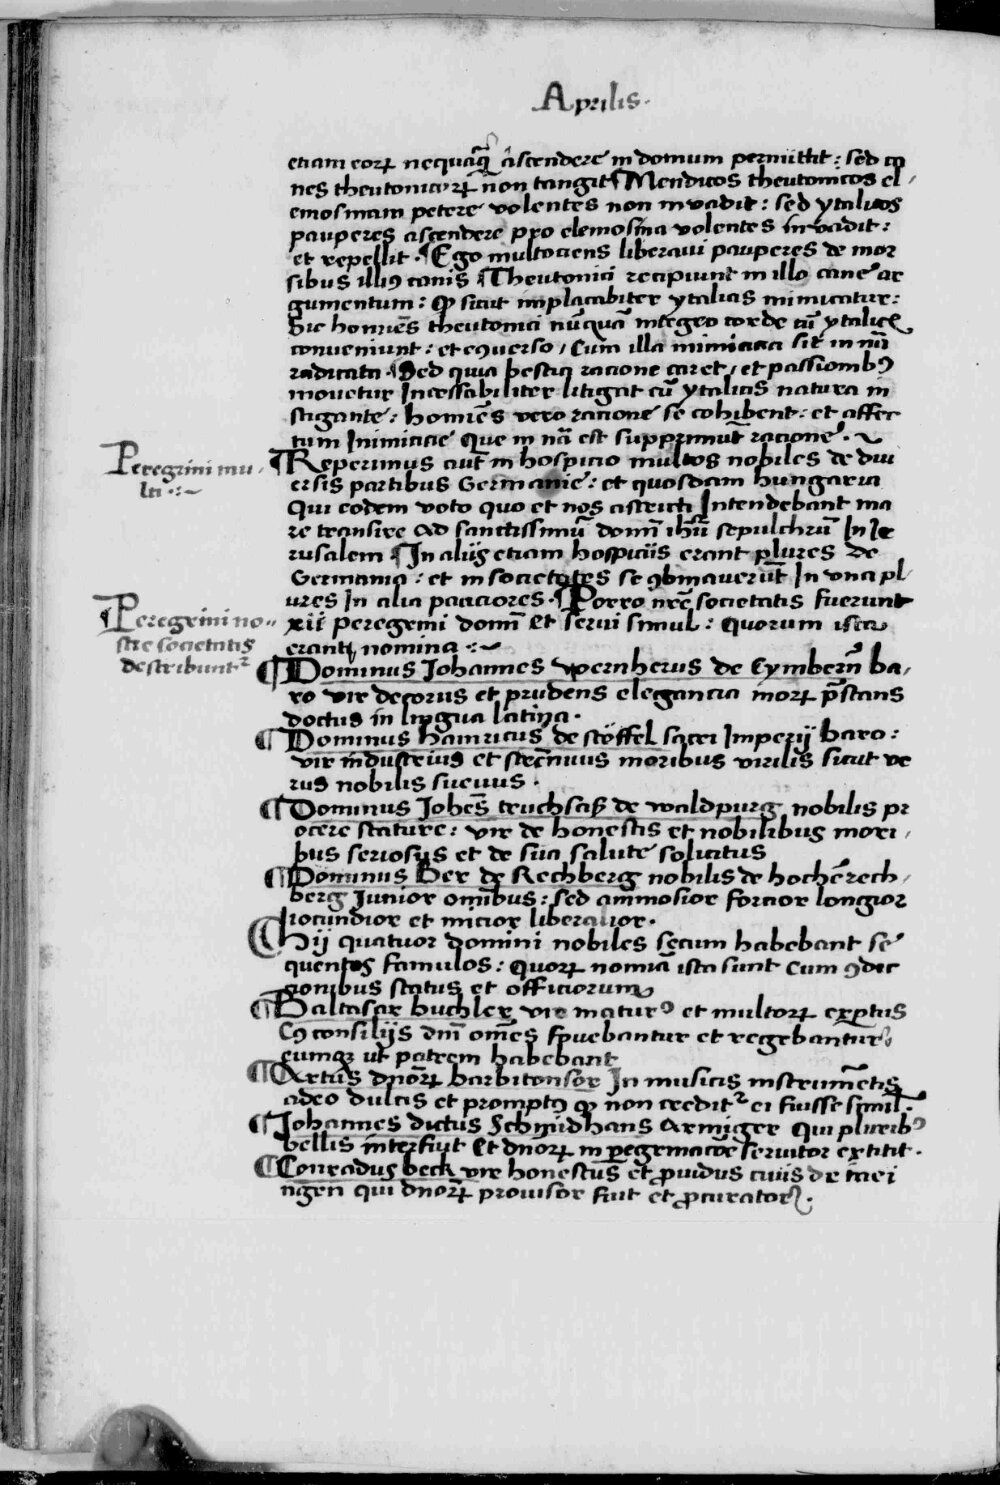 Aprilis.
etiam eorꝝ nequaq̃ ascendere in domum permittit: sed ca
nes theutonicorꝝ non tangit ¶ Mendicos theutonicos el,
emosinam petere volentes non invadit: sed ytalicos
pauperes ascendere pro elemosina volentes invadit:
et repellit. ¶ Ego multociens liberavi pauperes de mor
sibus illiꝰ canis ¶ Theutonici recipiunt in illo cane ar
gumentum: ꝙ sicut implacabiter ytalicis inimicatur:
Sic homiēs theutonici nūquā integro corde cū ytalicꝭ
conveniunt: et eꝯverso / Cum illa inimicicia sit in nūi
radicata. ¶ Sed quia bestia racione caret, et passionibꝰ
movetur Incessabiliter litigat cū ytalicis natura in
stigante: homiēs vero racione se cohibent: et affec
tum Inimicicie que in nā est supprimūt racione. ~
Peregrini mu,
lti .:~
¶ Reperimus aut̄ in hospicio multos nobiles de diu
ersis partibus Germanie: et quosdam hungaria
Qui eodem voto quo et nos astricti Intendebant ma
re transire Ad sanctissimū domī ihū sepulchrū In Je
rusalem ¶ In aliis etiam hospiciis erant plures de
Germania: et in societates se ꝯbinaverūt In vna pl,
ures In alia pauciores. ¶ Porro nr̄e societatis fuerunt
¶ Peregrini no,,
stre societatis
describuntᷣ
xii peregrini domī et servi simul: quorum ista
erant nomina .:~
¶ Dominus Johannes wernherus de Cymberñ ba,
ro vir decorus et prudens elegancia morꝝ p̄stans
doctus in lingua latina.
¶ Dominus hainricus de stöffel sacri Imperij baro:
vir industrius et strēnuus moribus virilis sicut ve
rus nobilis suevus.
¶ Dominus Johēs truchsaß de waldpurg nobilis pr
ocere stature: vir de honestis et nobilibus mori,
bus seriosus et de sua salute solicitus
¶ Dominus Ber de Rechberg nobilis de hochērech,
berg Junior omībus: sed animosior forcior longior
iocundior et micior liberalior.
¶ Hij quatuor domini nobiles secum habebant se
quentes famulos: quorꝝ nomīa ista sunt Cum ꝯdic
cionibus status et officiorum
¶ Baltasar buchler vir maturꝰ et multorꝝ exꝑtus
Cꝰ consiliis dnī omēs fruebantur et regebantur
eumqꝫ ut patrem habebant
¶ Artus dnōrꝝ barbitonsor In musicis instrumētis
adeo dulcis et promptꝰ ꝙ non creditᷣ ei fuisse simil̄.
¶ Johannes dictus Schmidhans Armiger qui pluribꝰ
bellis interfuit Et dnorꝝ in ꝑegrinacōe servitor extitit.
¶ Conradus beck vir honestus et ꝓvidus civis de mer
ngen qui dnorꝝ provisor fuit et ꝓcurator.